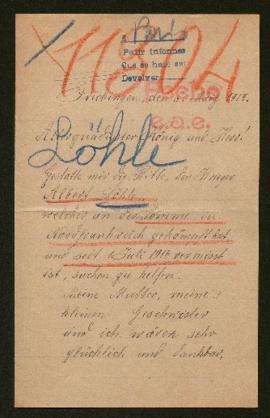 a París
Pedir informes
Que se haga así
Devolver
Hecho
e.o.e.
Löhle
Allergnädigster König und Herr!
gestatte mir die Bitte, den
Albert Löhle
welcher an der Somme in
Nordfrankreich gekämpft hat
und seit 1. Juli 1916 vermisst
ist, suchen zu helfen.
Meine Mutter, meine
kleinen Geschwister
und ich wären sehr
glücklich und dankbar,